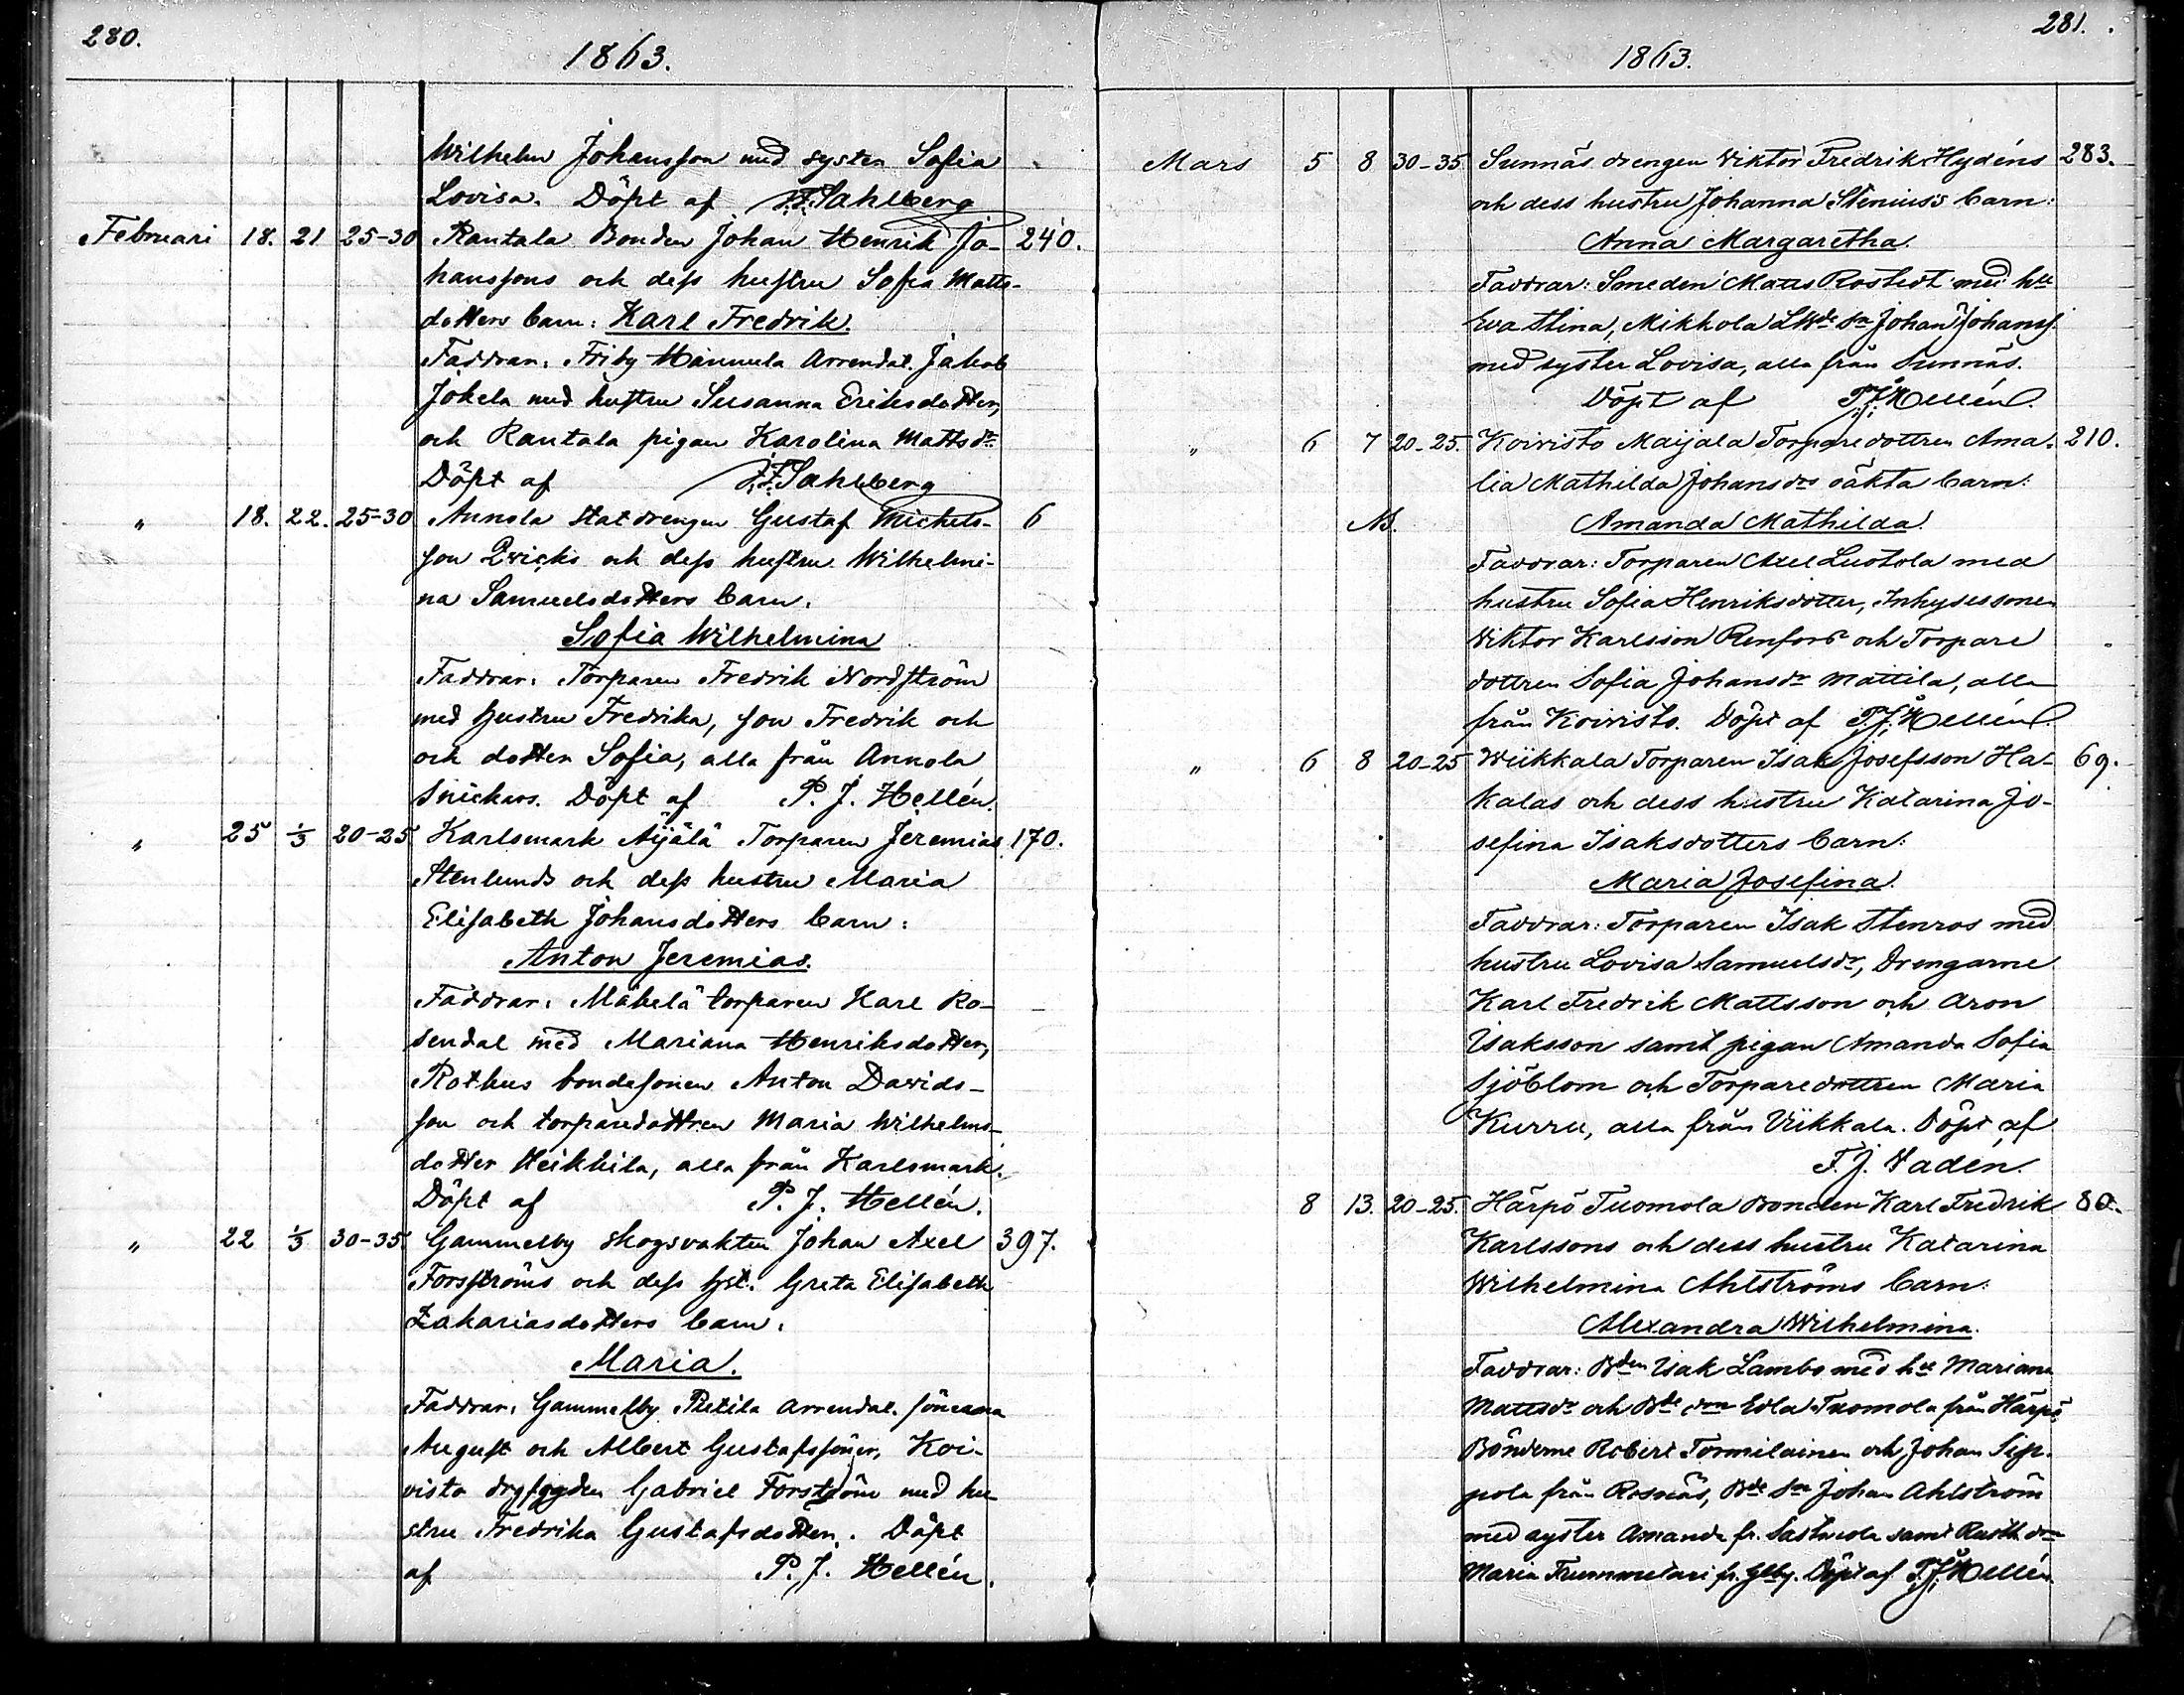 280.
1863.
Wilhelm Johansson med syster Sofia
Lovisa. Döpt af F. Sahlberg
Februari 18. 21 25-30 Rantala Bonden Johan Henrik Jo- 240.
hanssons och dess hustru Sofia Matts-
dotters barn: Karl Fredrik.
Faddrar: Friby Hannula Arrendat. Jakob
Jokela med hustru Susanna Eriksdotter,
och Rantala pigan Karolina Mattsdr.
Döpt af F. Sahlberg
" 18. 22. 25-30 Annola statdrengen Gustaf Michels- 6
son Qvicks och dess hustru Wilhelmi-
na Samuelsdotters barn.
Sofia Wilhelmina
Faddrar: Torparen Fredrik Nordström
med hustru Fredrika, son Fredrik och
och dotter Sofia, alla från Annola
Snickars. Döpt af P. J. Hellén.
" 25 1/3 20-25 Karlsmark Äijälä Torparen Jeremias 170.
Stenlunds och dess hustru Maria
Elisabeth Johansdotters barn:
Anton Jeremias.
Faddrar: Mäkelä torparen Karl Ro-
sendal med Mariana Henriksdotter,
Rothus bondesonen Anton Davids-
son och torparedottren Maria Wilhelms-
dotter Heikkila, alla från Karlsmark.
Döpt af P. J. Hellén.
" 22 1/3 30-35. Gammelby skogsvakten Johan Axel 397.
Forsströms och dess hst. Greta Elisabeth
Zakariasdotters barn.
Maria.
Faddrar: Gammelby Pietila Arrendat. sönerna
August och Albert Gustafssöner, Koi-
visto Gabriel Forström med hu-
stru Fredrika Gustafsdotter. Döpt
af P. J. Hellén.
281.
1863.
Mars 5 8 30-35 Sunnäs drengen Viktor Fredrik Hydéns 283.
och dess hustru Johanna Stenius's barn:
Anna Margaretha.
Faddrar: Smeden Matts Rostedt med hu
Eva Stina, Mikkola Johan Johanss.
med syster Lovisa, alla från Sunnäs.
Döpt af P. J. Hellén.
" 6 7 20-25. Koivisto Maijala Torparedottren Ama- 210.
lia Mathilda Johansdrs oäkta barn:
NB. Amanda Mathilda.
Faddrar: Torparen Axel Luotola med
hustru Sofia Henriksdotter, Inhysessonen
Viktor Karlsson Renfors och Torpare
dottren Sofia Johansdr Mattila, alla
från Koivisto. Döpt af P. J. Hellén.
" 6 8 20-25 Wiikkala Torparen Isak Josefsson Ha- 69.
kalas och dess hustru Katarina Jo-
sefina Isaksdotters barn:
Maria Josefina.
Faddrar: Torparen Isak Stenros med
hustru Lovisa Samuelsdr, Drengarne
Karl Fredrik Mattsson och Aron
Isaksson samt pigan Amanda Sofia
Sjöblom och Torparedottren Maria
Kurru, alla från Viikkala. Döpt af
F. J. Vadén.
8 13. 20-25. Härpö Tuomola Bonden Karl Fredrik 80.
Karlssons och dess hustru Katarina
Wilhelmina Ahlströms barn:
Alexandra Wilhelmina.
Faddrar: Bden Isak Lambo med hu Mariana
Mattsdr och Bde dr Edla Tuomola från Härpö
Bönderne Robert Tormilainen och Johan Sip-
pola från Rosnäs, Bde sn Johan Ahlström
med syster Amanda fr. samt Rusth dr
Maria fr. Glby. Döpt af P. J. Hellén.